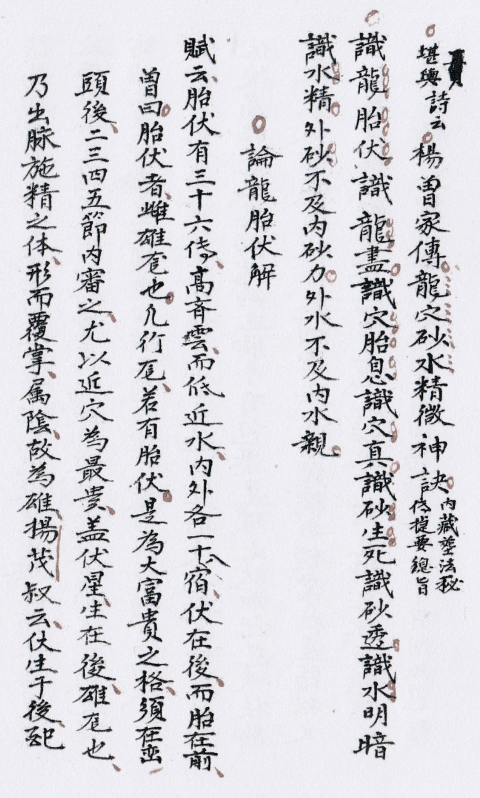 堪輿詩云 楊曾家傳龍穴砂水精微神訣 內藏塟法秘傳提要總旨
識龍胎伏識龍盡識穴胎息識穴真識砂生死識砂透識水明暗
識水精外砂不及內砂力外水不及內水親
論龍胎伏解
賦云胎伏有三十六傳高斉雲而低近水內外各一十八宿伏在後而胎在前
曾曰胎伏者雌雄也凡行若有胎伏是為大富貴之格須在
頭後二三四五節內審之尤以近穴為最貴盖伏星生在後雄也
乃出脉施精之体形而覆掌属陰故為雄楊茂叔云伏生于後